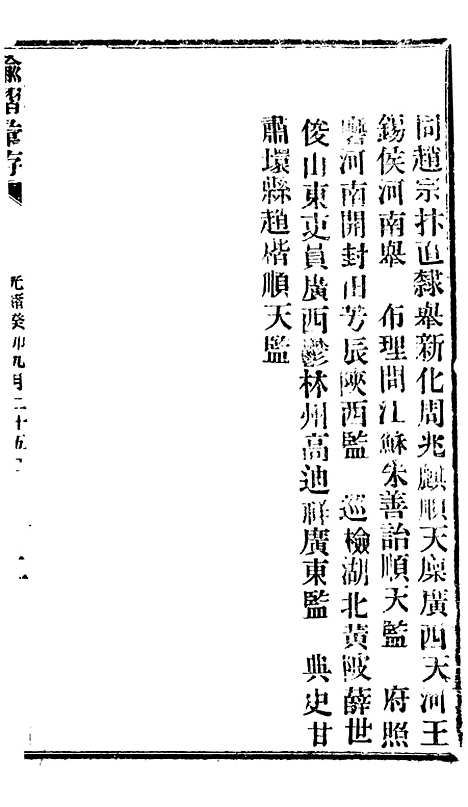 同趙宗抃直隸舉新化周兆麒順天廩廣西天河王
錫侯河南舉　布理問江蘇朱善詒順天監　府照
磨河南開封田芳辰陝西監　巡檢湖北黃陂薛世
俊山東吏員廣西鬱林州高迪祥廣東監　典史甘
肅環縣趙楷順天監
諭摺彙存
光緒癸卯九月二十五日